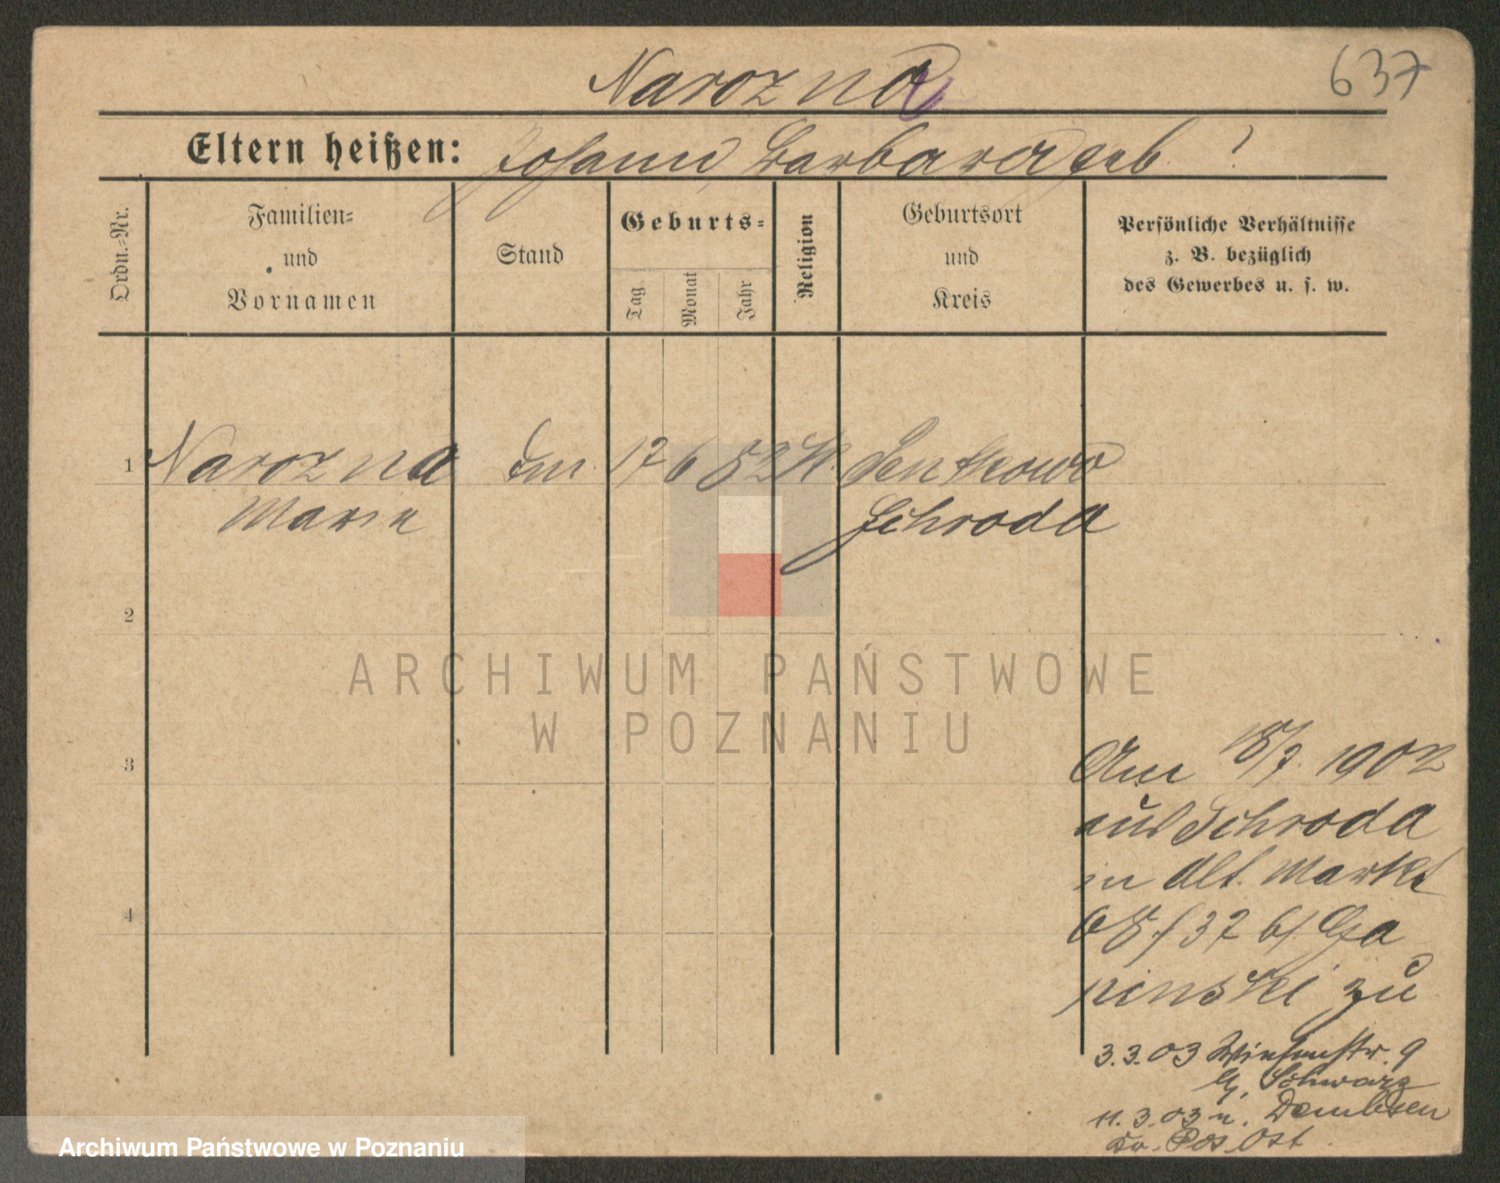 637
Narozna
Eltern heißen: Johann, Barbara geb. ?
Ordn.-Nr.
Familien-
und
Vornamen
Stand
Geburts-
Tag
Monat
Jahr
Religion
Geburtsort
und
Kreis
Persönliche Verhältnisse
z. B. bezüglich
des Gewerbes u. s. w.
1 Narozna 17 6 82 K. Sentkowo
Maria
Schroda
2
ARCHIWUM PAŃSTWOWE
W POZNANIU
3
Am 18/7. 1902
aus Schroda
in Alt. Markt
37 b/ Ga
pinski zu
4
3.3.03 9
Schwarz
11.3.03 n. Dembsen
Kr. Pos. Ost.
Archiwum Państwowe w Poznaniu